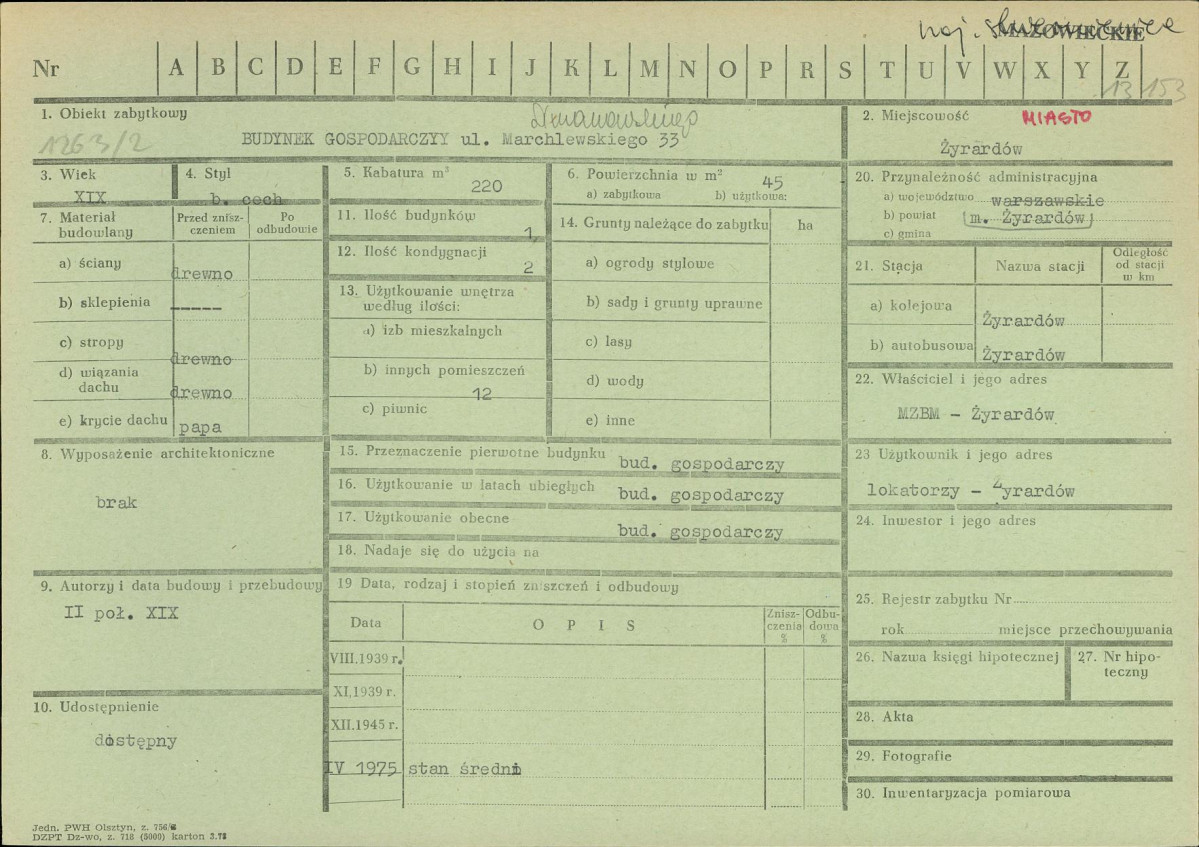 woj. skierniewickie
MAZOWIECKIE
Nr A B C D E F G H I J K L M N O P R S T U V W X Y Z
13 153
1. Obiekt zabytkowy
1263/2
BUDYNEK GOSPODARCZYY ul. Marchlewskiego 33
2. Miejscowość MIASTO
Żyrardów
3. Wiek
XIX
4. Styl
b. cech
5. Kabatura m³
220
6. Powierzchnia w m² 45
a) zabytkowa b) użytkowa:
7. Materiał budowlany
Przed znisz-
czeniem
Po
odbudowie
a) ściany drewno
b) sklepienia -----
c) stropy drewno
d) wiązania
dachu drewno
e) krycie dachu papa
11. Ilość budynków
1,
12. Ilość kondygnacji
2
13. Użytkowanie wnętrza
według ilości:
a) izb mieszkalnych
b) innych pomieszczeń
12
c) piwnic
14. Grunty należące do zabytku ha
a) ogrody stylowe
b) sady i grunty uprawne
c) lasy
d) wody
e) inne
20. Przynależność administracyjna
a) województwo warszawskie
b) powiat (m. Żyrardów)
c) gmina
21. Stacja Nazwa stacji
Odległość
od stacji
w km
a) kolejowa Żyrardów
b) autobusowa Żyrardów
22. Właściciel i jego adres
MZBM - Żyrardów
8. Wyposażenie architektoniczne
brak
15. Przeznaczenie pierwotne budynku bud. gospodarczy
16. Użytkowanie w latach ubiegłych bud. gospodarczy
17. Użytkowanie obecne bud. gospodarczy
18. Nadaje się do użycia na
23 Użytkownik i jego adres
lokatorzy - Żyrardów
24. Inwestor i jego adres
9. Autorzy i data budowy i przebudowy
II poł. XIX
19 Data, rodzaj i stopień zniszczeń i odbudowy
Data OPIS
Znisz-
czenia
%
Odbu-
dowa
%
VIII.1939 r.
XI,1939 r.
XII.1945 r.
IV 1975 stan średni
25. Rejestr zabytku Nr
rok miejsce przechowywania
26. Nazwa księgi hipotecznej
27. Nr hipo-
teczny
10. Udostępnienie
dostępny
28. Akta
29. Fotografie
30. Inwentaryzacja pomiarowa
Jedn. PWH Olsztyn, z. 756/
DZPT Dz-wo, z. 718 (5000) karton 3.73